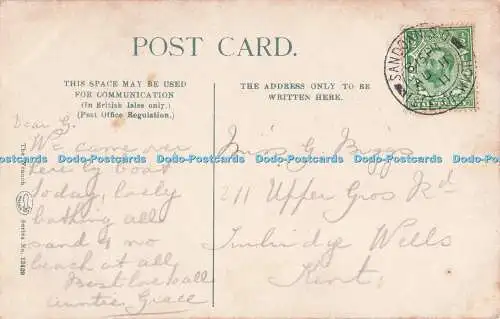 POST CARD.
THIS SPACE MAY BE USED
FOR COMMUNICATION
(In British Isles only.)
(Post Office Regulation.)
THE ADDRESS ONLY TO BE
WRITTEN HERE.
Dear G.
We came over
here by boat
today, lovely
bathing all
sand & no
beach at all
Best love all
Auntie Grace
Miss G. Buggs
211 Upper Gros Rd
Tunbridge Wells
Kent.
Series No. 13439
Dodo-Postcards Dodo-Postcards Dodo-Postcards Dodo-Postcards Dodo-Postcards